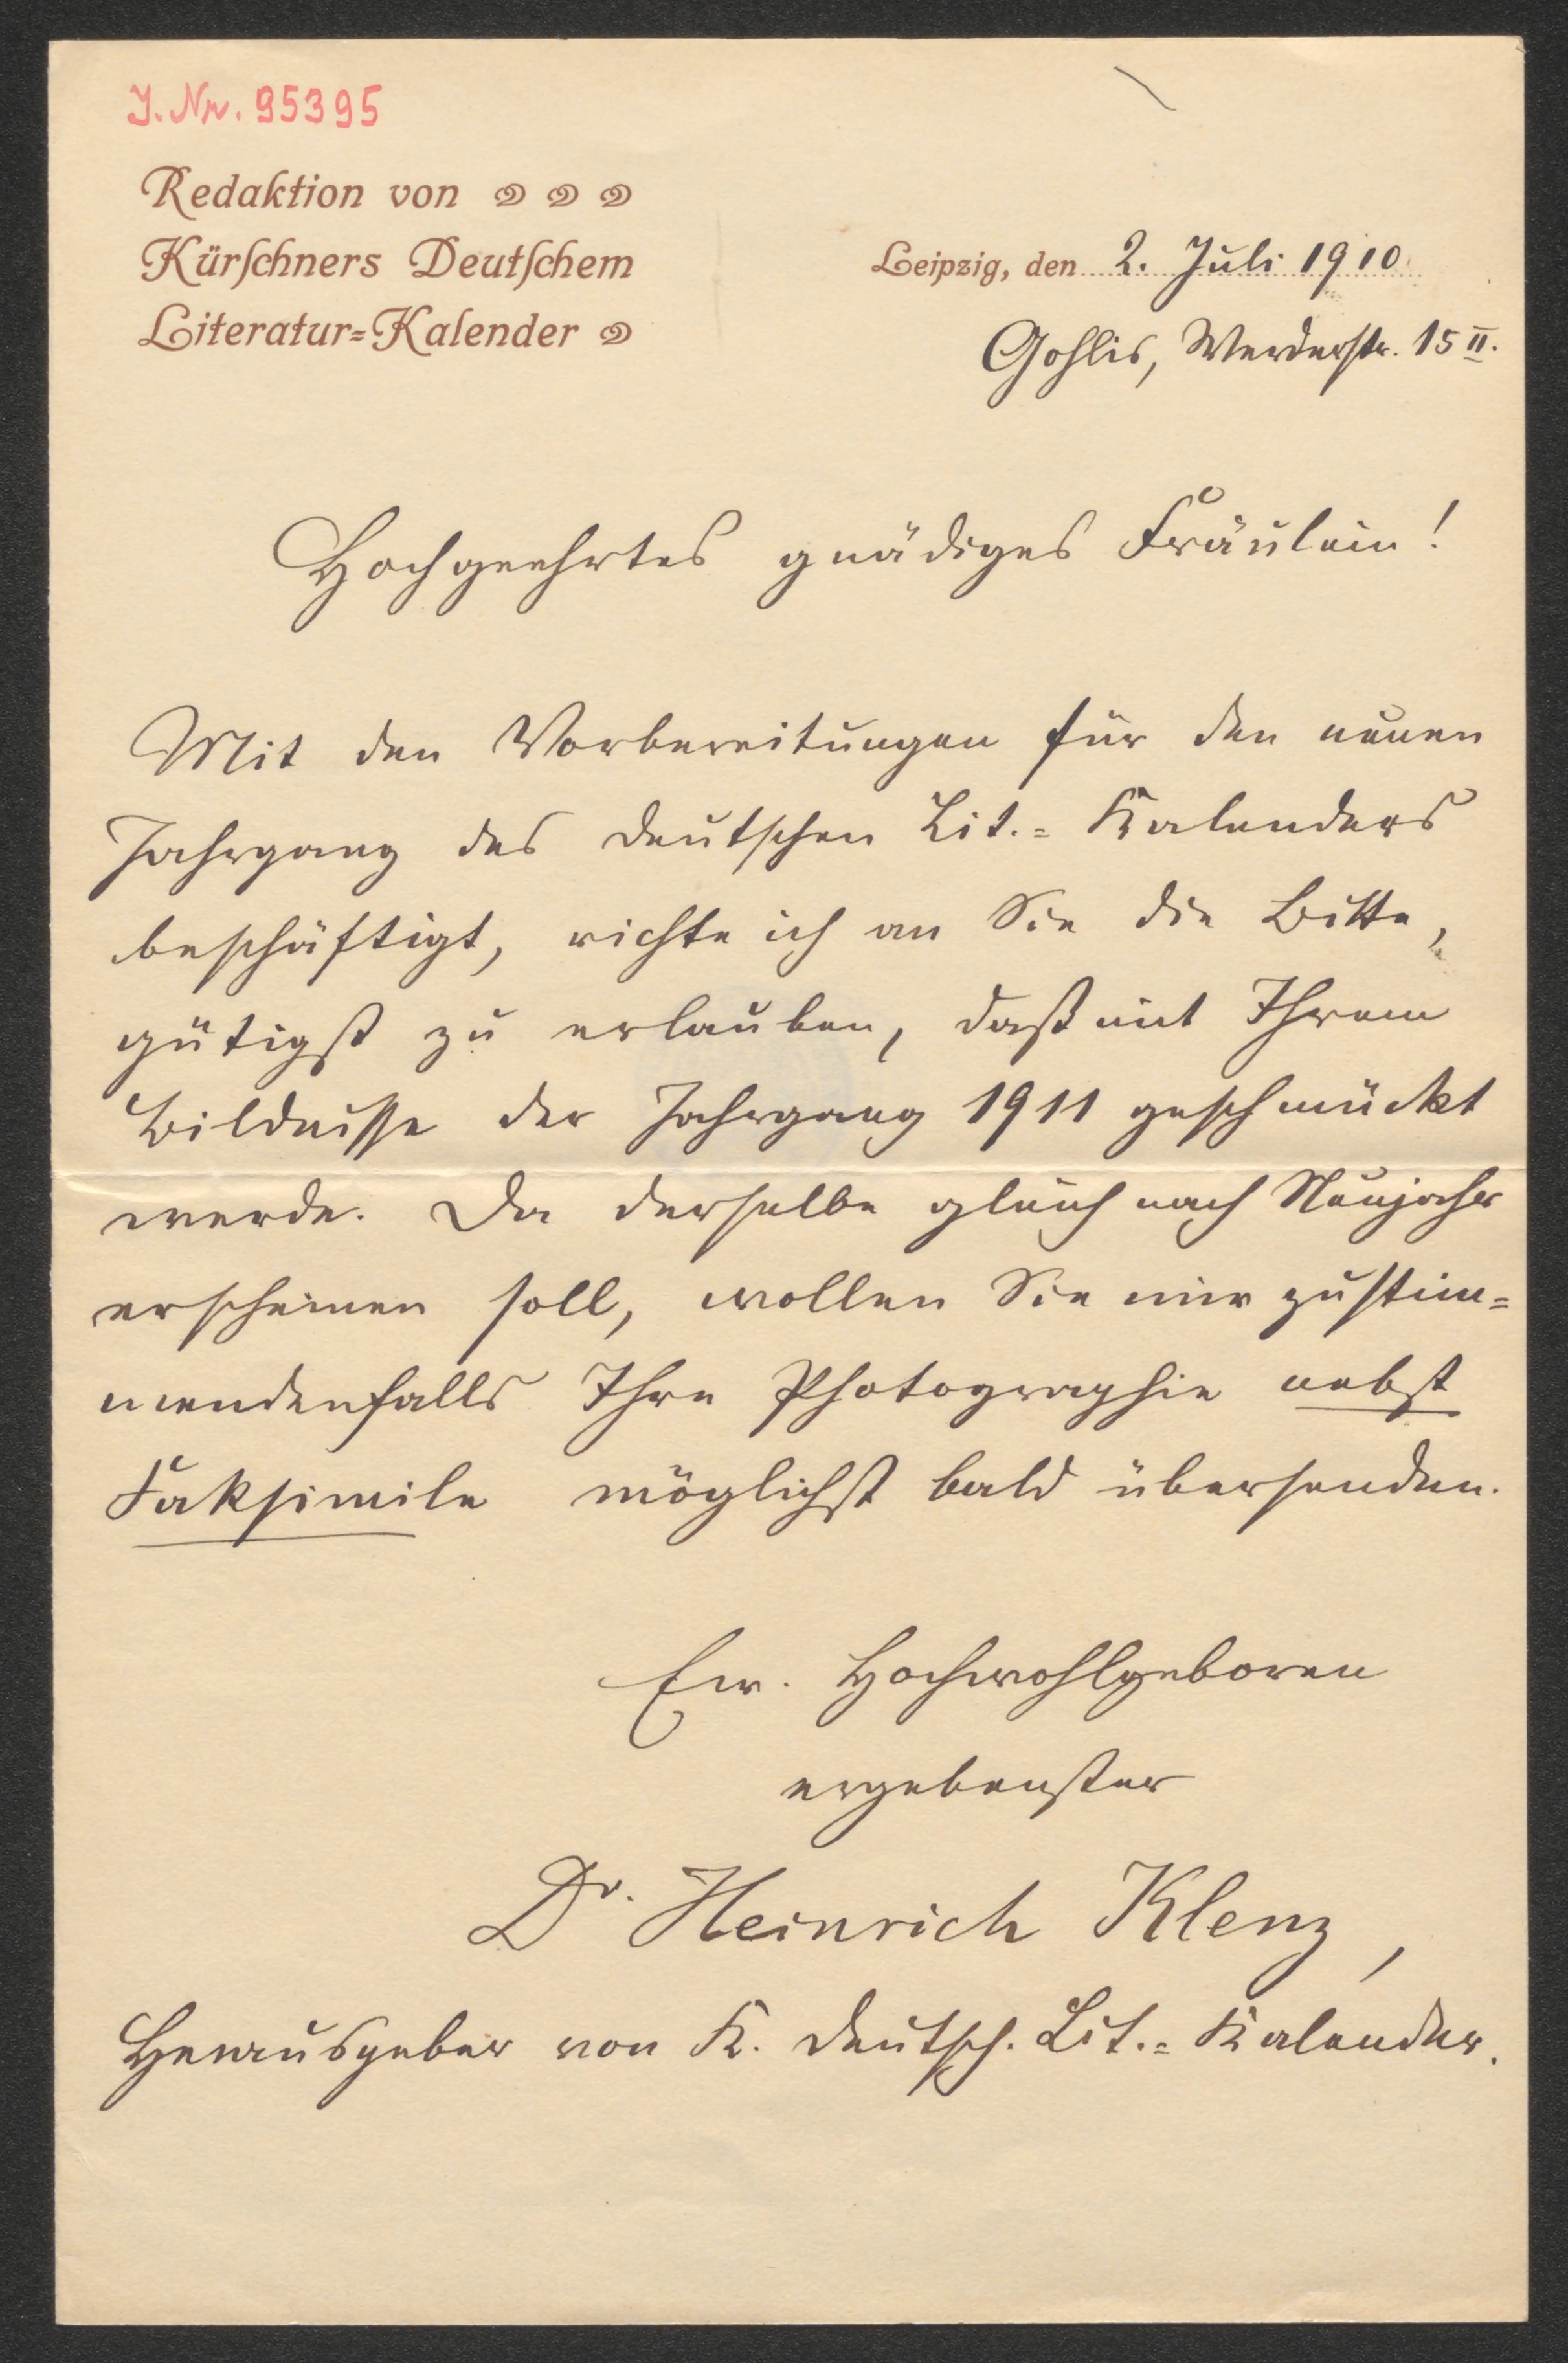 J. Nr. 95395
Redaktion von
Kürſchners Deutſchem
Literatur=Kalender
Leipzig, den 2. Juli 1910
Gohlis, Werderstr. 15 II.
Hochgeehrtes gnädiges Fräulein!
Mit den Vorbereitungen für den neuen
Jahrgang des Deutschen Lit.=Kalenders
beschäftigt, richte ich an Sie die Bitte,
gütigst zu erlauben, daß mit Ihrem
Bildnisse der Jahrgang 1911 geschmückt
werde. Da derselbe gleich nach Neujahr
erscheinen soll, wollen Sie mir zustim=
mendenfalls Ihre Photographie nebst
Faksimile möglichst bald übersenden.
Ew. Hochwohlgeboren
ergebenster
Dr. Heinrich Klenz,
Herausgeber von K. Deutsch. Lit.=Kalender.